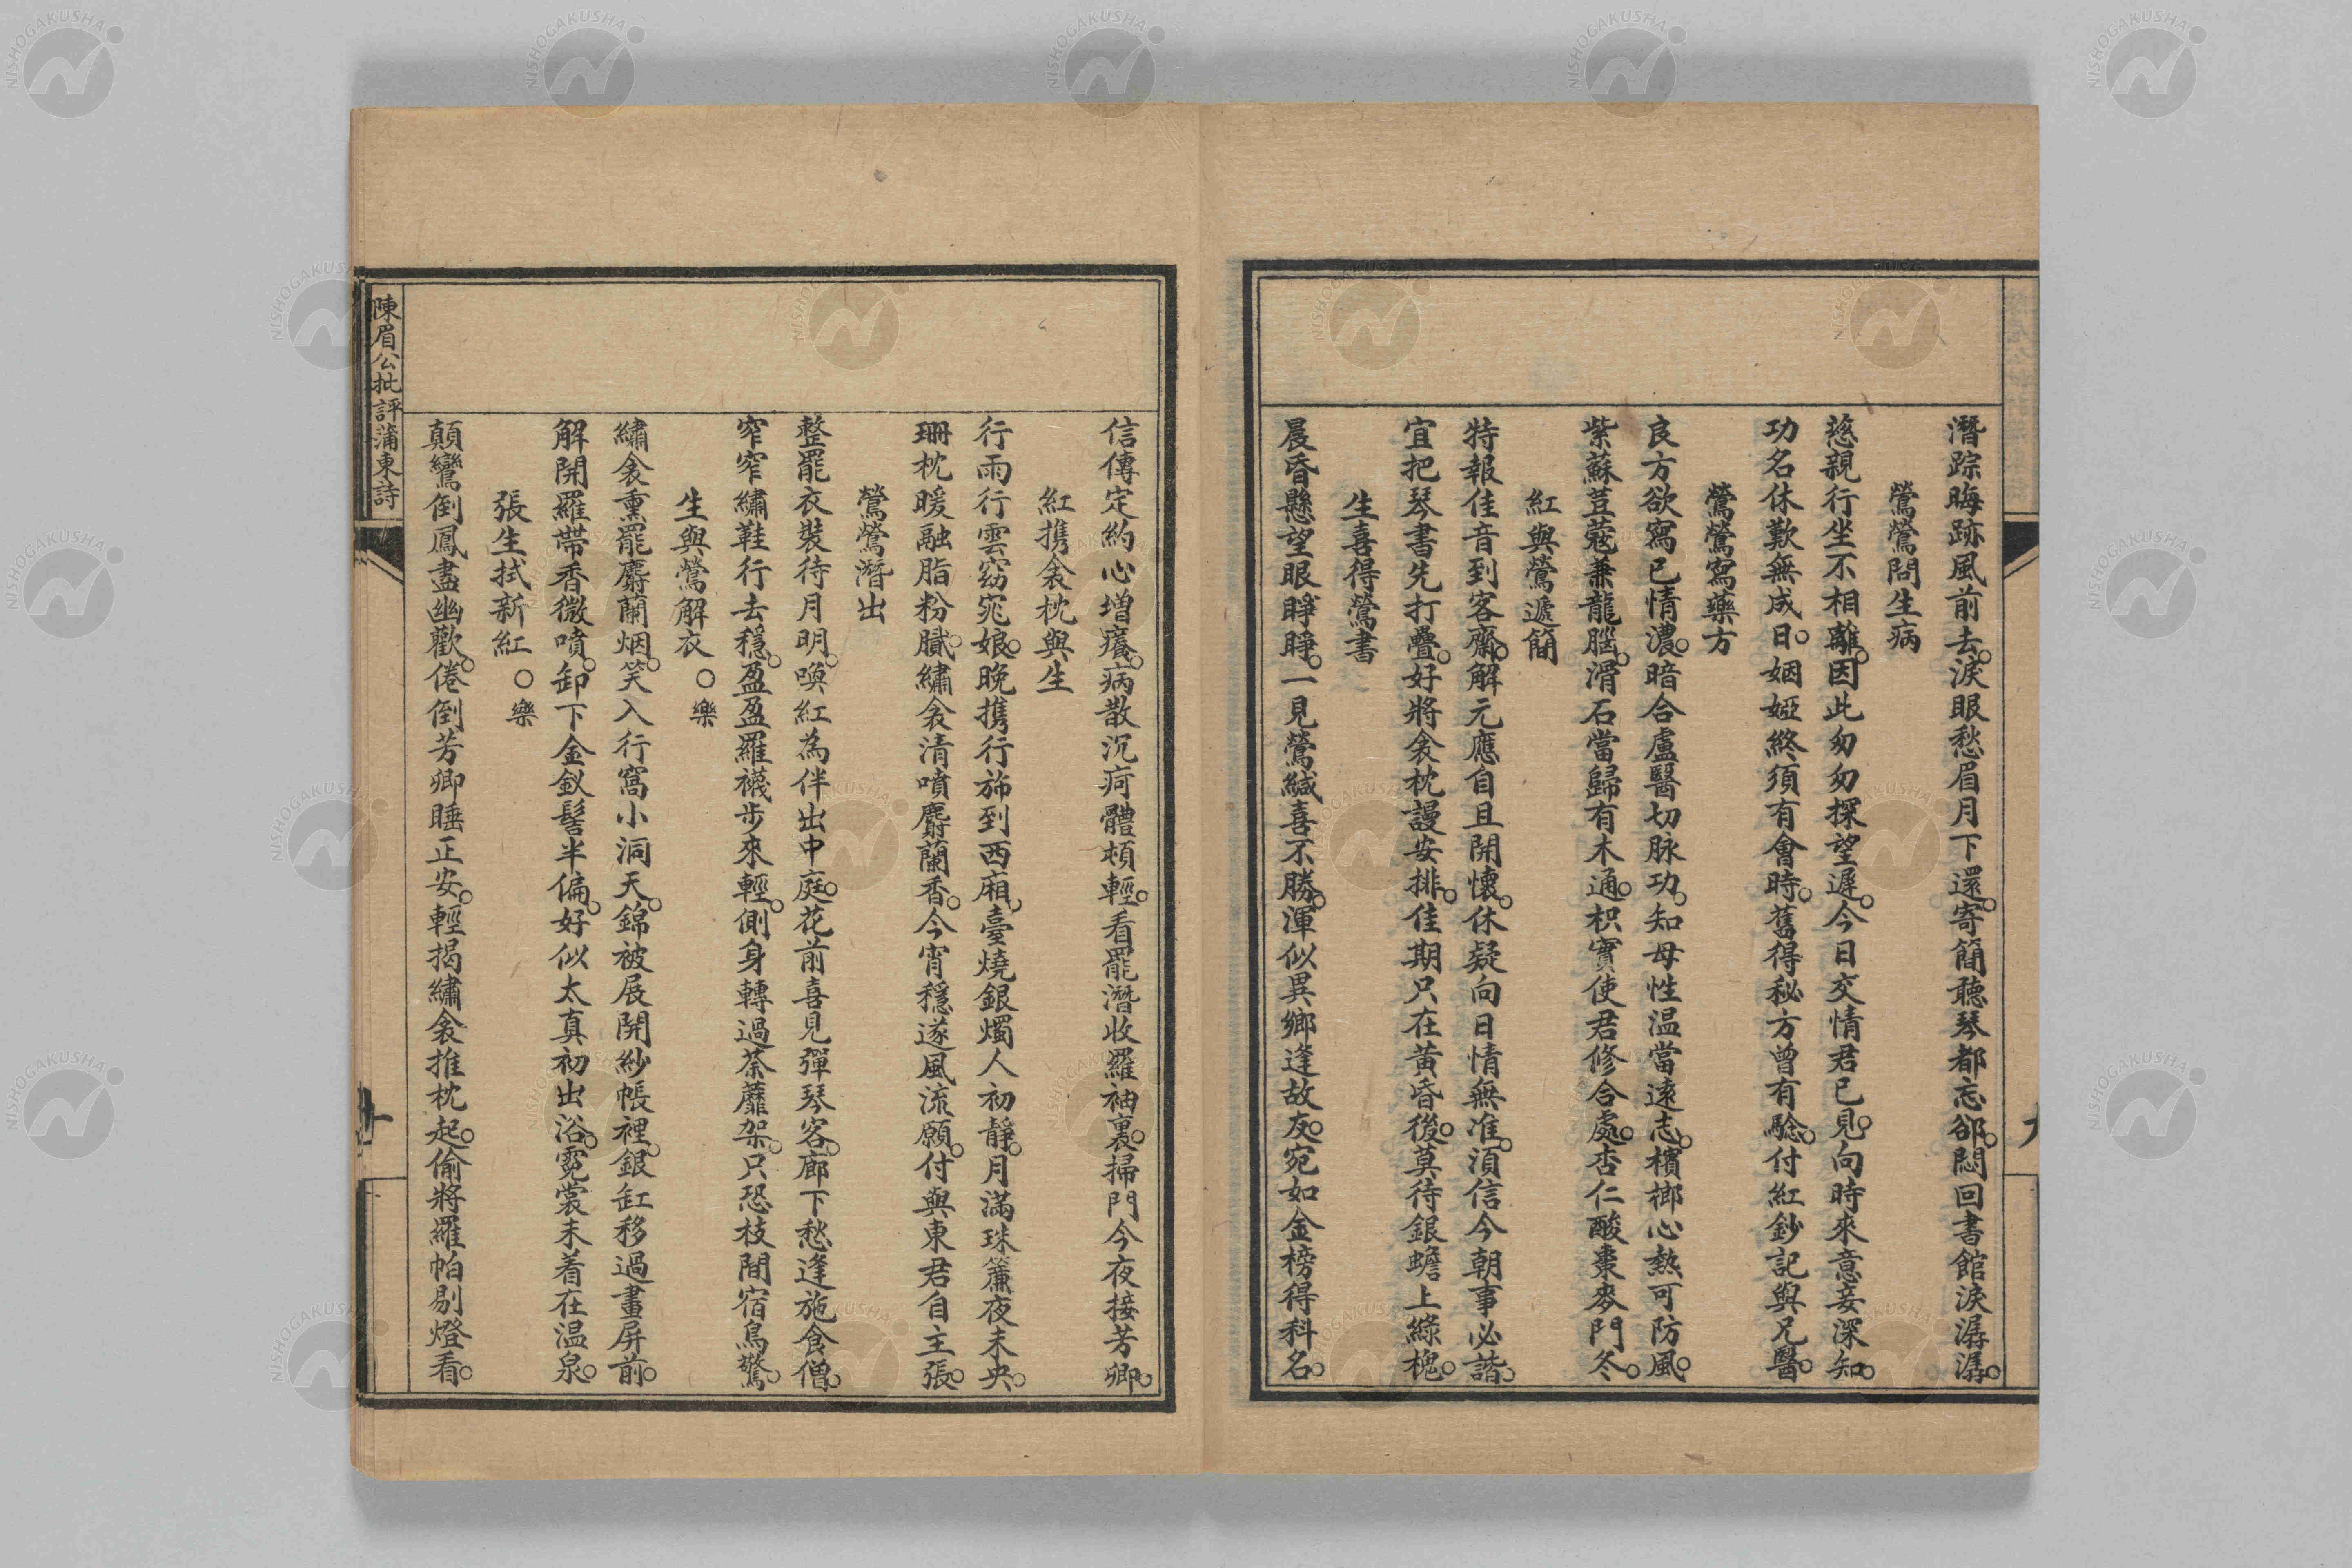 潛踪晦跡風前去。淚眼愁眉月下還。寄簡聽琴都忘郤。悶回書館淚潺潺。
鶯鶯問生病
慈親行坐不相離。因此匆匆探望遲。今日交情君已見。向時來意妾深知。
功名休歎無成日。姻婭終須有會時。舊得秘方曾有驗。付紅鈔記與兄醫。
鶯鶯寫藥方
良方欲寫已情濃。暗合盧醫切脉功。知母性温當遠志。檳榔心熱可防風。
紫蘇荳蔻兼龍腦。滑石當歸有木通。枳實使君修合處。杏仁酸棗麥門冬。
紅與鶯遞簡
特報佳音到客齋。解元應自且開懷。休疑向日情無准。須信今朝事必諧。
宜把琴書先打疊。好將衾枕謾安排。佳期只在黄昏後。莫待銀蟾上綠槐。
生喜得鶯書
晨昏懸望眼睜睜。一見鶯緘喜不勝。渾似異鄉逢故友。宛如金榜得科名。
信傳定約心增癢。病散沉疴體頓輕。看罷潛收羅袖裏。掃門今夜接芳卿。
紅携衾枕與生
行雨行雲窈窕娘。晚携行旆到西廂。臺燒銀燭人初靜。月滿珠簾夜未央。
珊枕暖融脂粉膩。繡衾清噴麝蘭香。今宵穩遂風流願。付與東君自主張。
鶯鶯潛出
整罷衣裝待月明。喚紅為伴出中庭。花前喜見彈琴客。廊下愁逢施食僧。
窄窄繡鞋行去穩。盈盈羅襪步來輕。側身轉過荼蘼架。只恐枝間宿鳥驚。
生與鶯解衣 ○樂
繡衾熏罷麝蘭烟。笑入行窩小洞天。錦被展開紗帳裡。銀缸移過畫屏前。
解開羅帶香微噴。卸下金釵髻半偏。好似太真初出浴。霓裳未着在温泉。
張生拭新紅 ○樂
顛鸞倒鳳盡幽歡。倦倒芳卿睡正安。輕揭繡衾推枕起。偷將羅帕剔燈看。
陳眉公批評蒲東詩
十
NISHOGAKUSHA